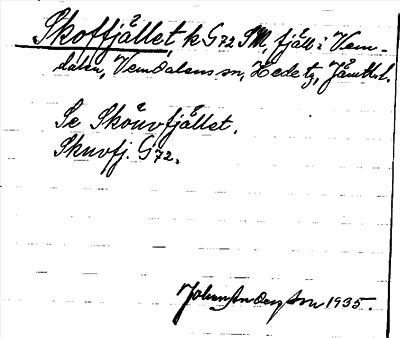 Skoffjället, k G72 SM, fjäll i Vem-
dalen, Vemdalens sn, Hede tg, Jämtl. l.
Se Skôuvfjället.
Skuvfj. G72.
John Anderson 1935.